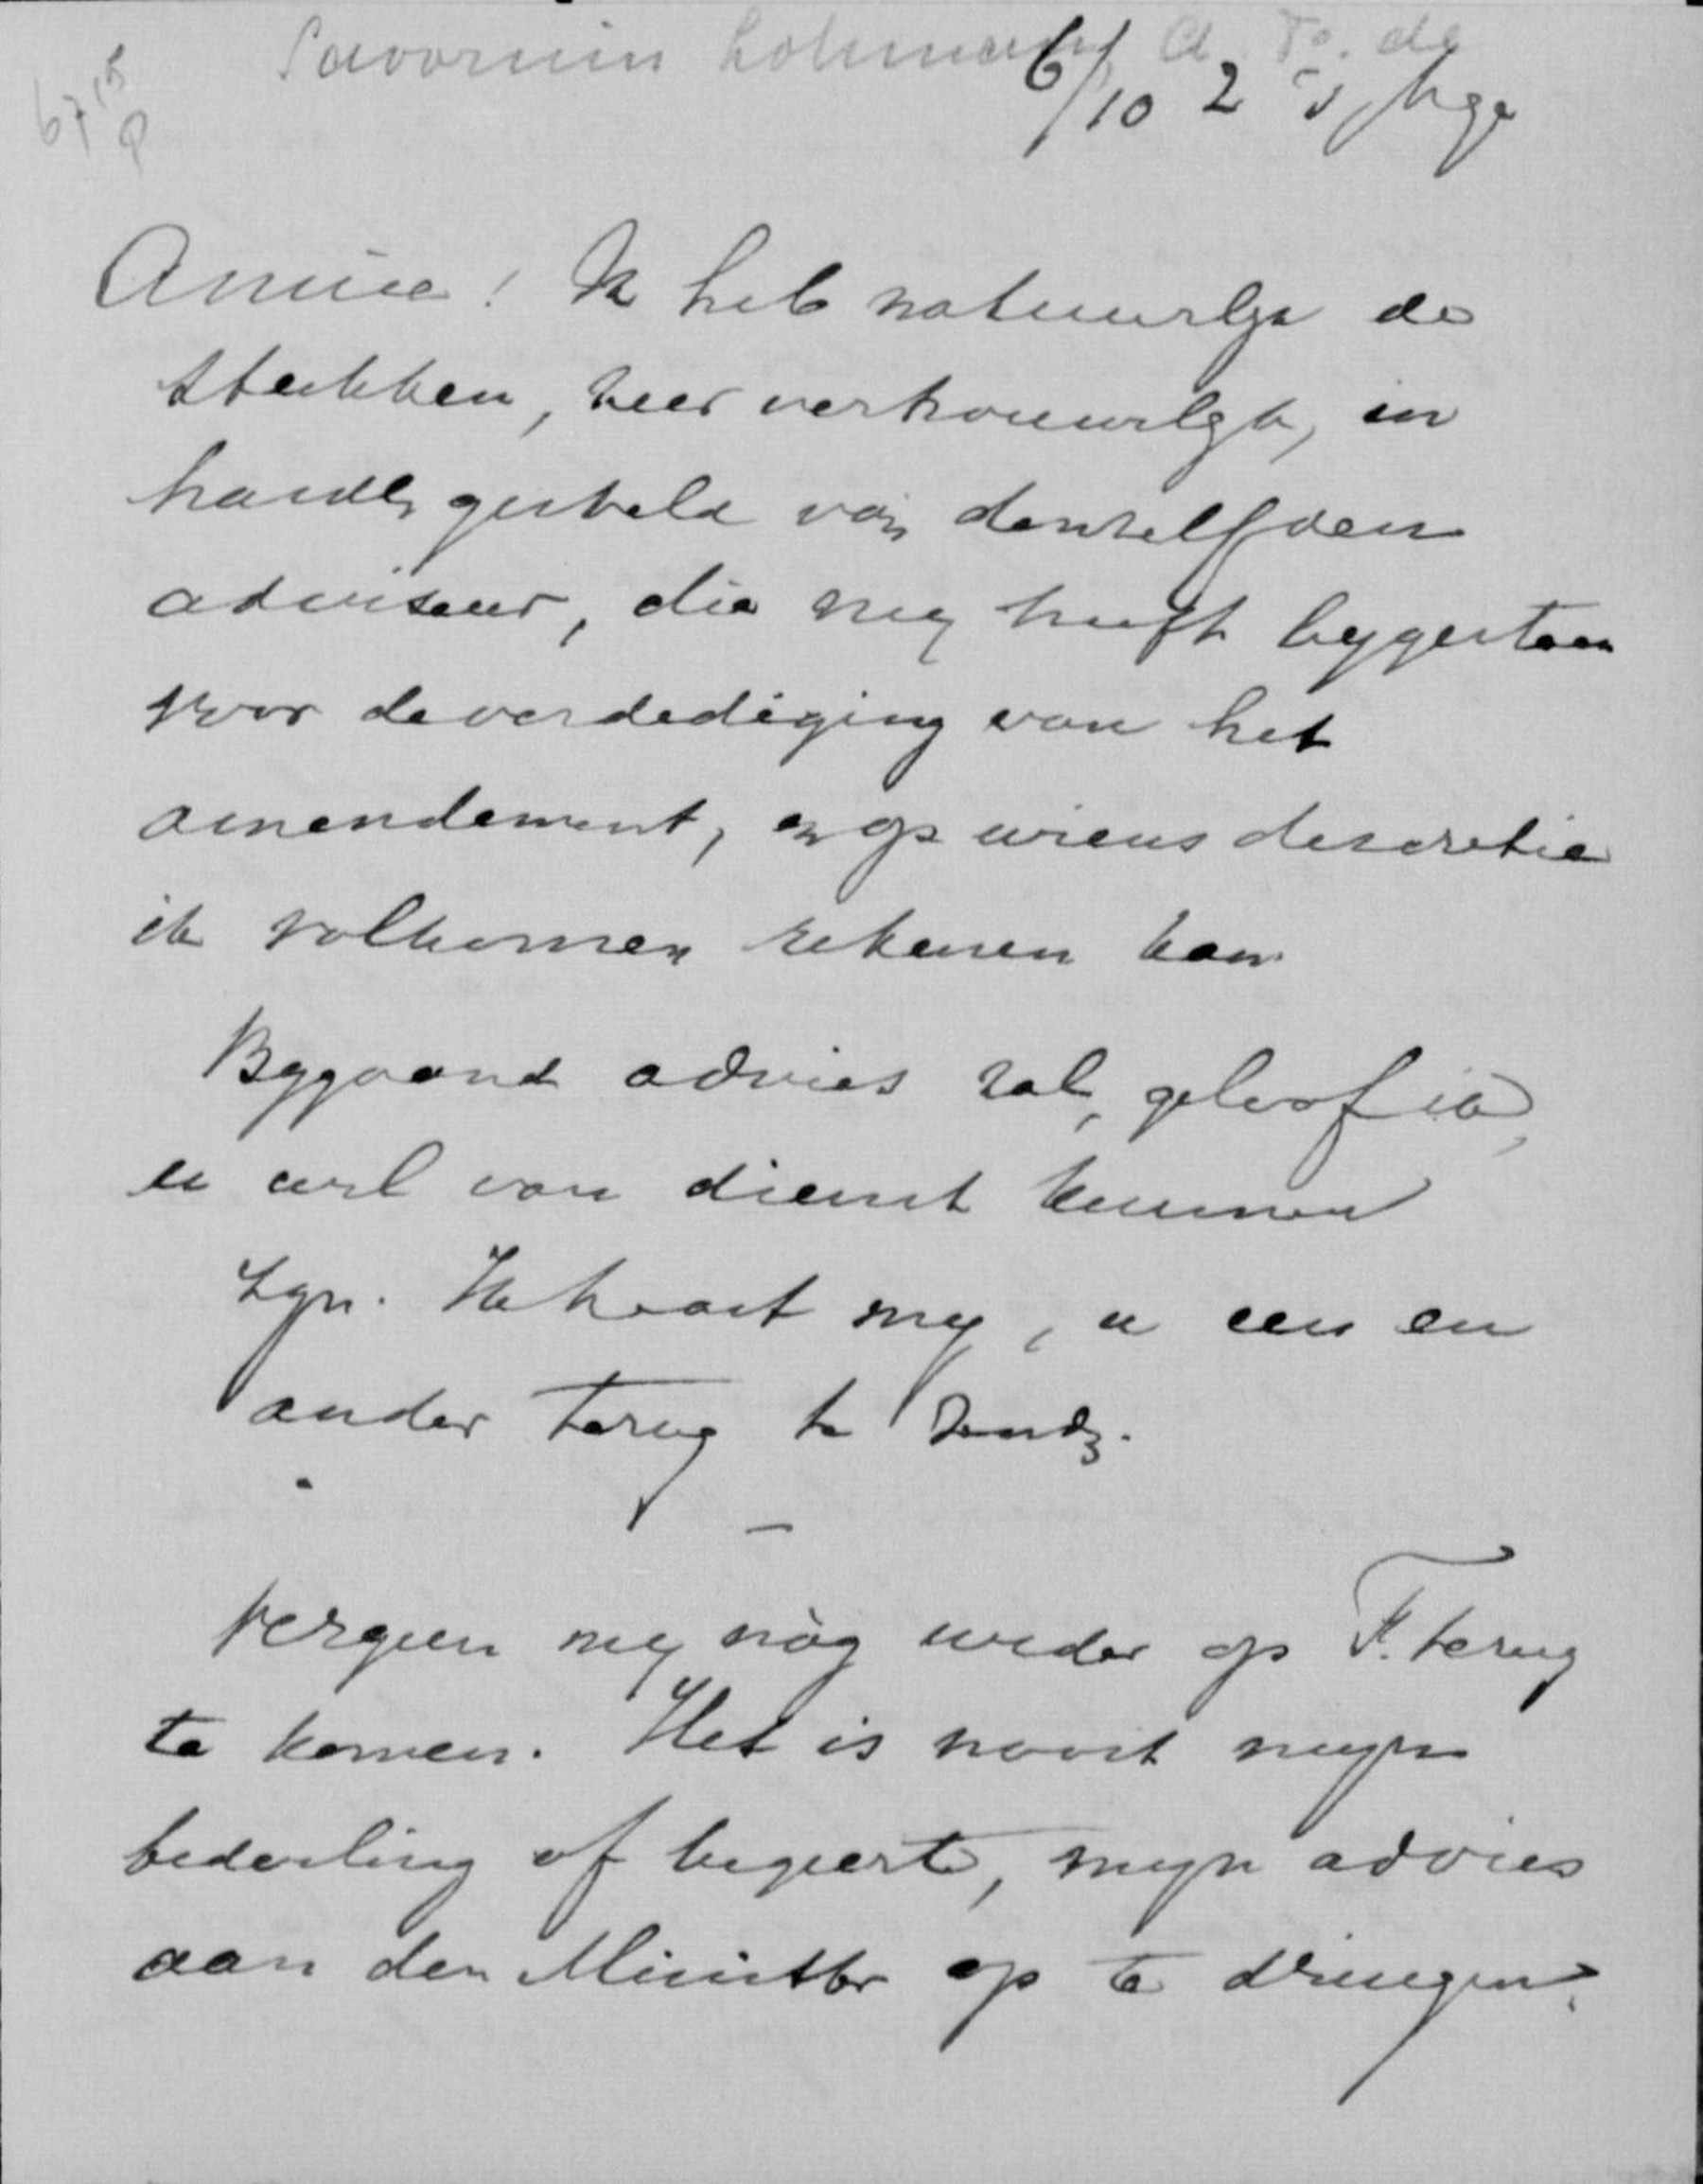 Savornin Lohman, A. F. de
6/10 2 's Hge
Amice! Ik heb natuurlyk de
stukken, zeer vertrouwelyk, in
handen gesteld van denzelfden
adviseur, die my heeft bygestaan
voor de verdediging van het
amendement, en op wiens descretie
ik volkomen rekenen kan.
Bygaand advies zal, geloof ik,
u wel van dienst kunnen
zyn. Ik haast my, u een en
ander terug te zenden.
—
Vergun my nòg weder op F. terug
te komen. Het is nooit myn
bedoeling of begeerte, myn advies
aan den Minister op te dringen.